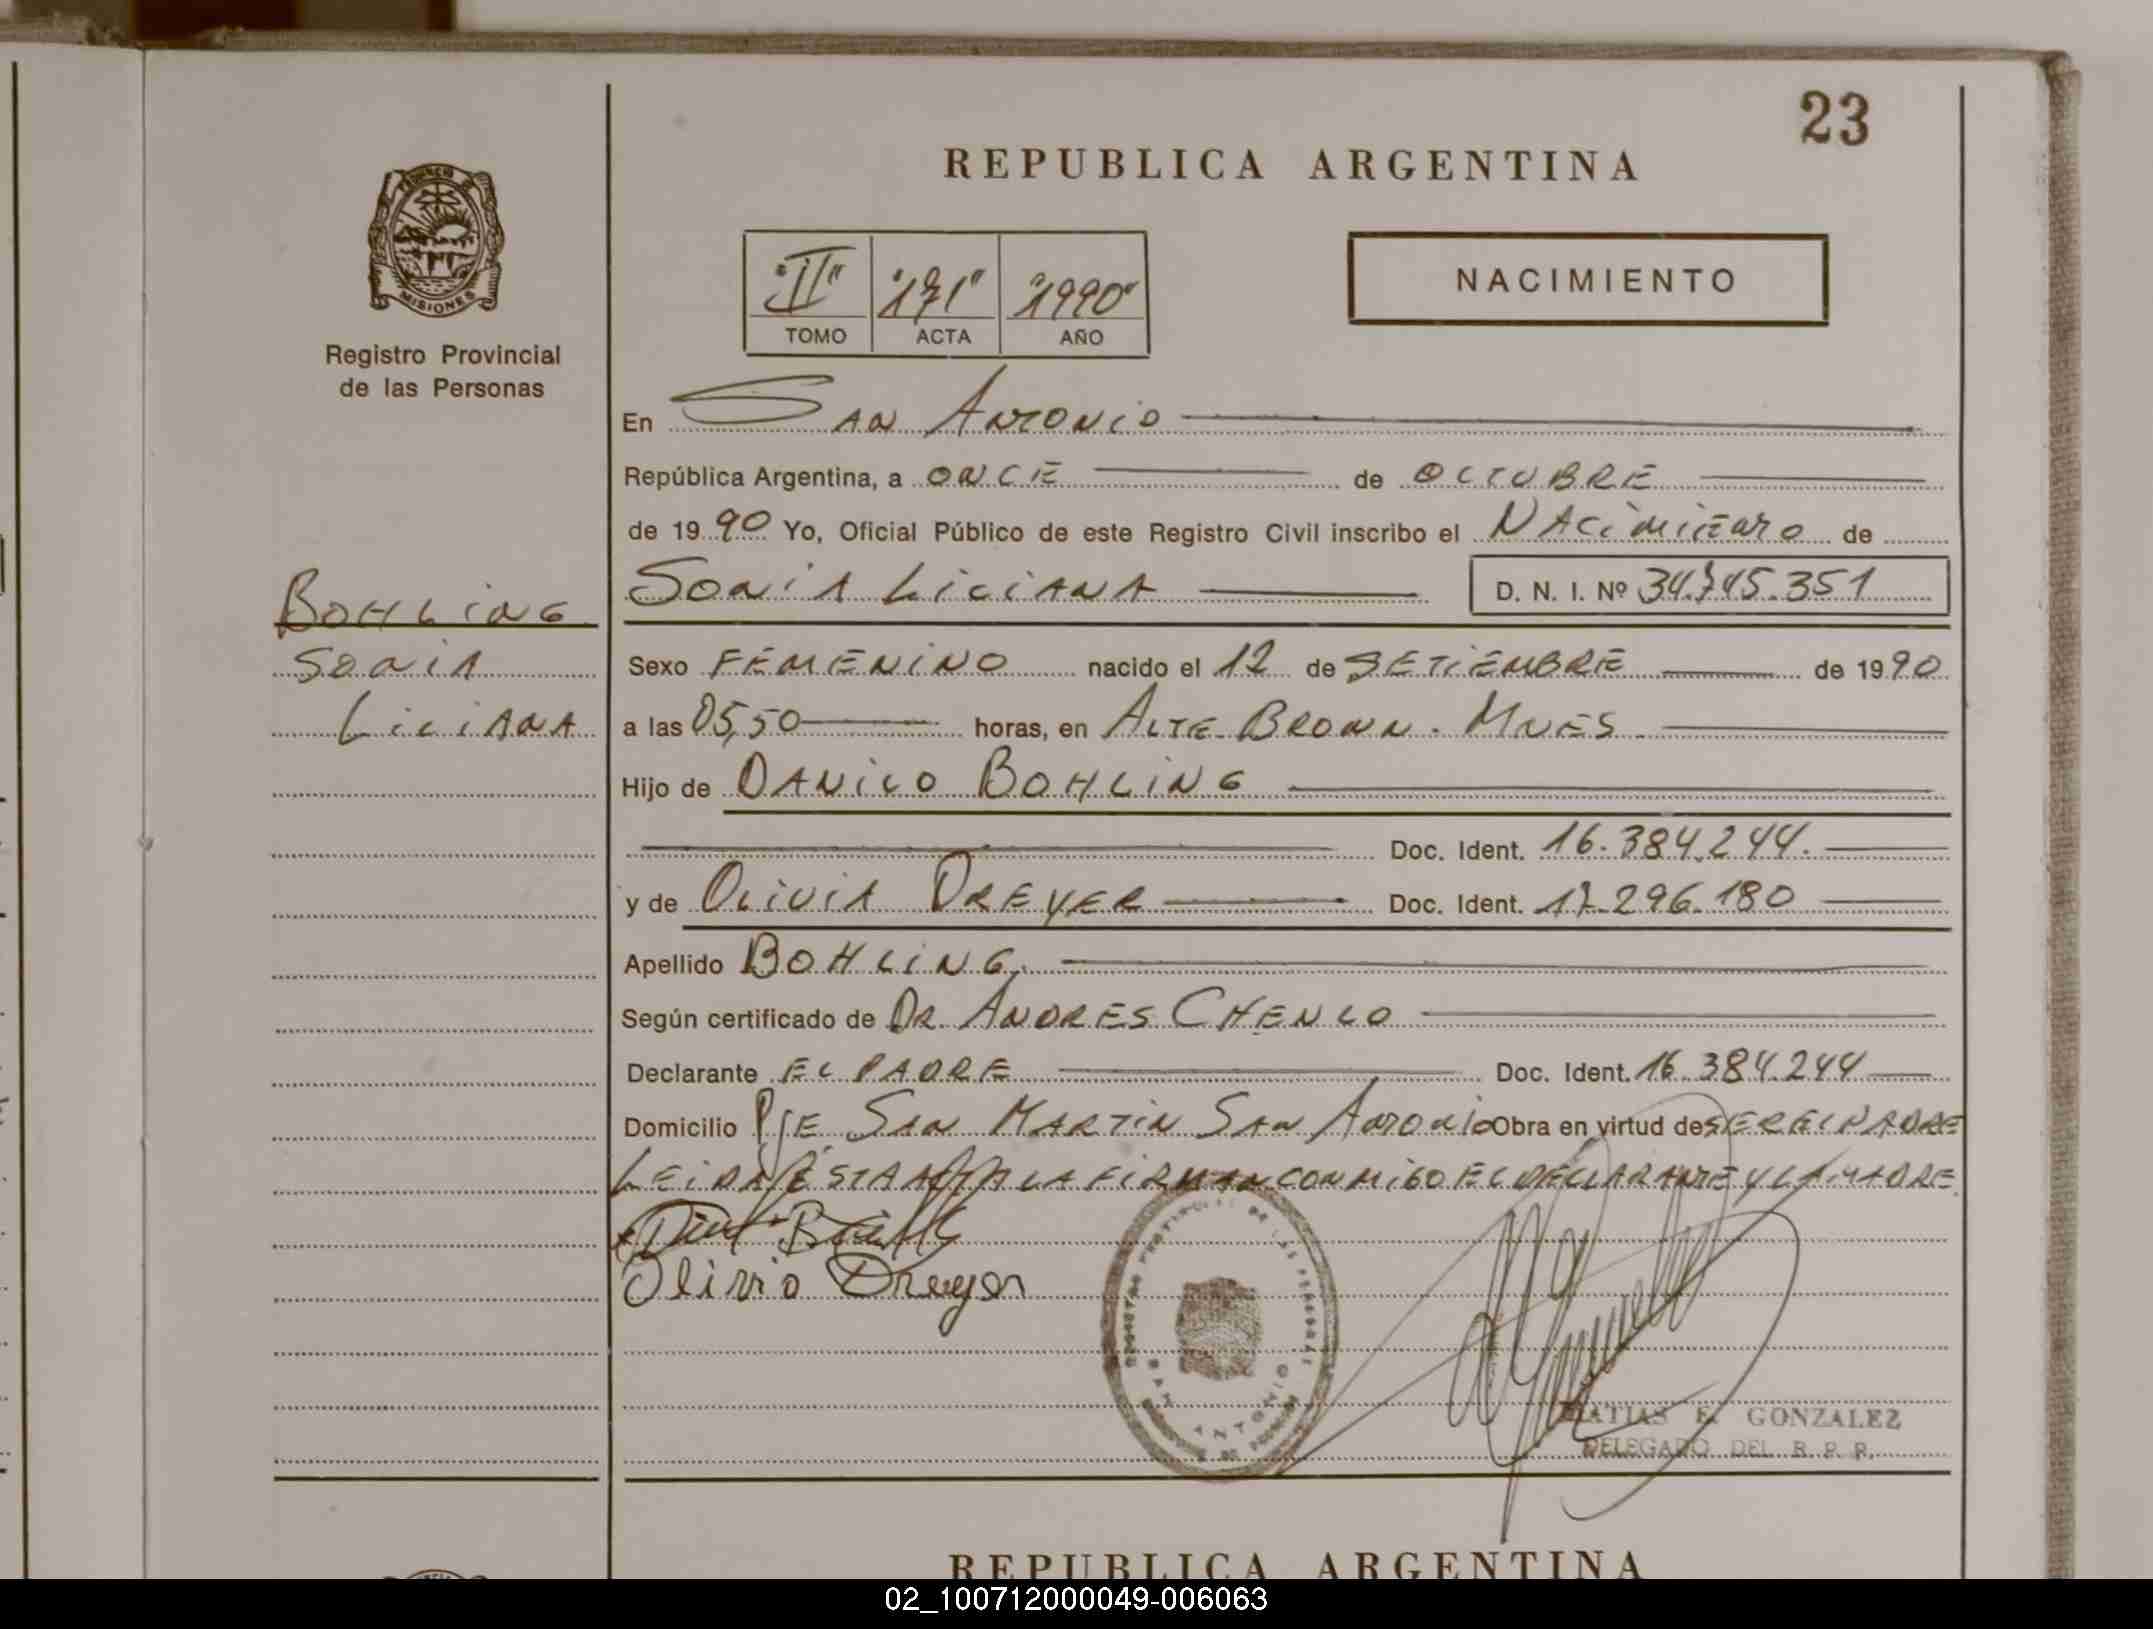 23
REPUBLICA ARGENTINA
PROVINCIA DE
MISIONES
Registro Provincial
de las Personas
"II" "171" "1990"
TOMO ACTA AÑO
NACIMIENTO
En SAN ANTONIO
República Argentina, a ONCE de OCTUBRE
de 1990 Yo, Oficial Público de este Registro Civil inscribo el NACIMIENTO de
SONIA LICIANA D. N. I. Nº 34.745.351
BOHLING
SONIA
LICIANA
Sexo FEMENINO nacido el 12 de SETIEMBRE de 1990
a las 05,50 horas, en ALTE BROWN. MNES.
Hijo de DANILO BOHLING
Doc. Ident. 16.384.244.
y de OLIVIA DREYER Doc. Ident. 17.296.180
Apellido BOHLING.
Según certificado de DR. ANDRES CHENLO
Declarante EL PADRE Doc. Ident. 16.384.244
Domicilio PJE SAN MARTIN SAN ANTONIO Obra en virtud de SER EL PADRE
LEIDA ESTA ACTA LA FIRMAN CONMIGO EL DECLARANTE Y LA MADRE
Olivio Dreyer
REGISTRO PROVINCIAL DE LAS PERSONAS
SAN ANTONIO
MATIAS E. GONZALEZ
DELEGADO DEL R. P. P.
REPUBLICA ARGENTINA
02_100712000049-006063